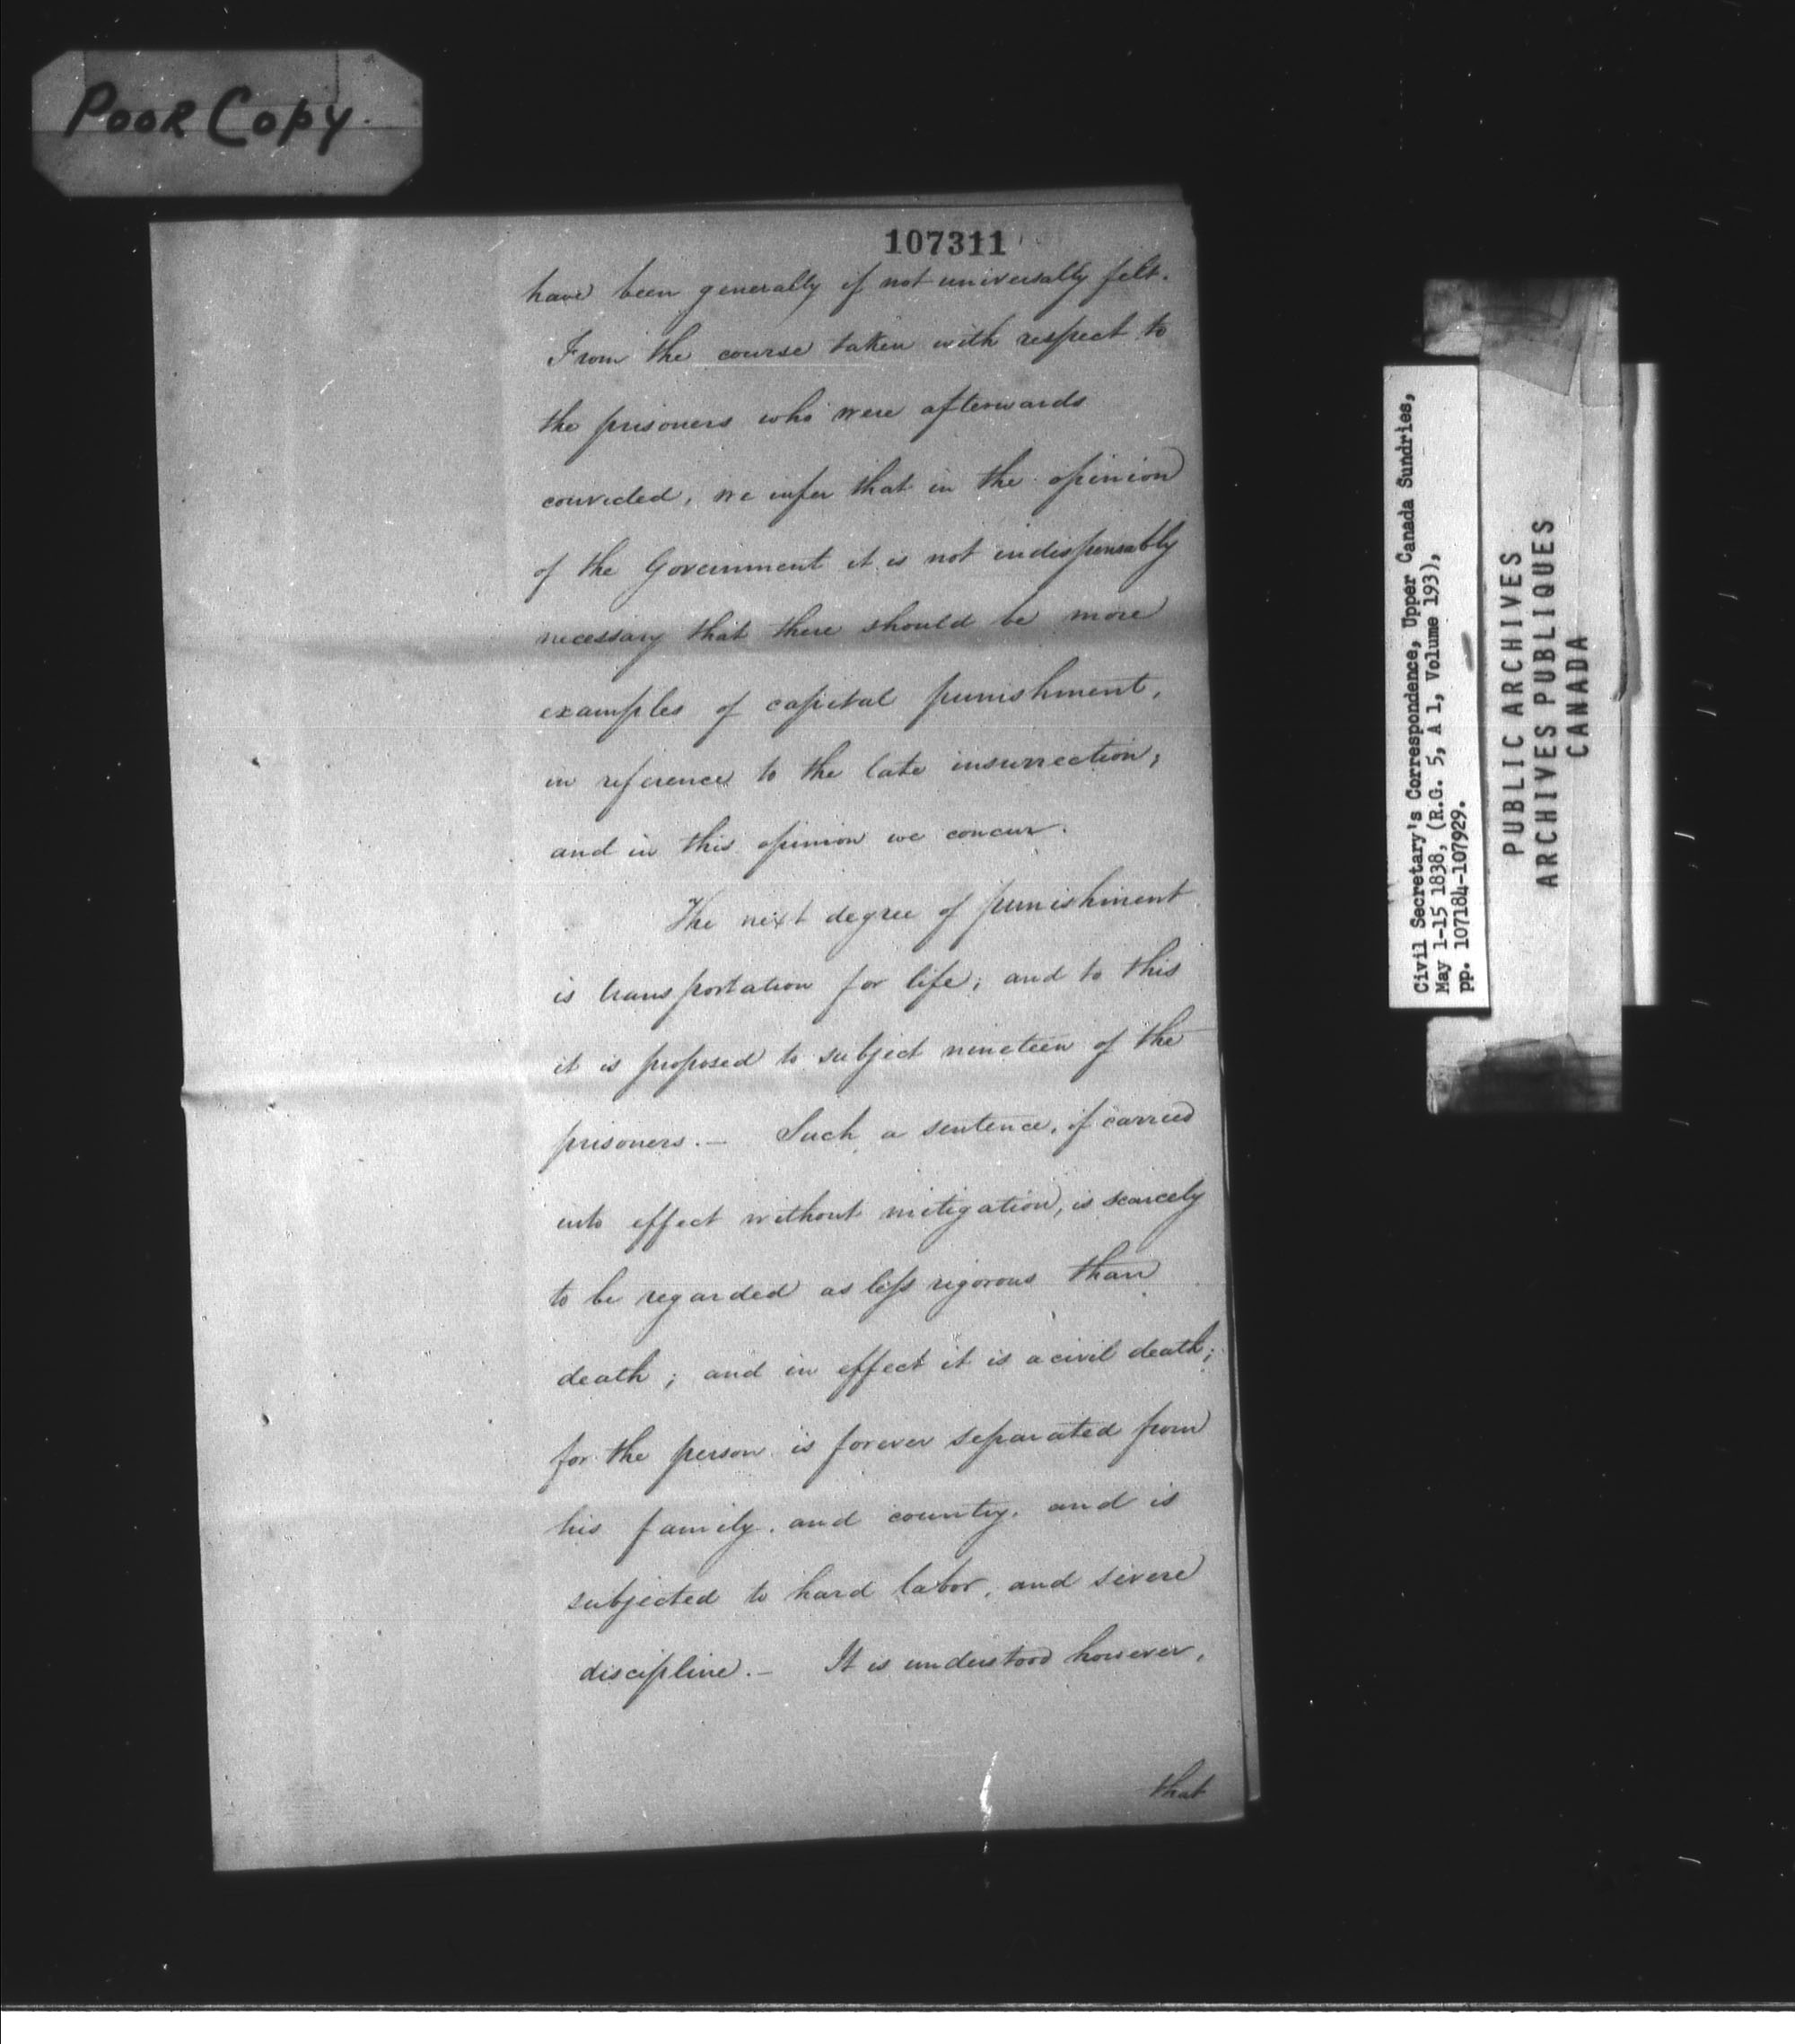 Poor Copy.
107311
have been generally if not universally felt.
From the course taken with respect to
the prisoners who were afterwards
convicted, we infer that in the opinion
of the Government it is not indispensably
necessary that there should be more
examples of capital punishment,
in reference to the late insurrection;
and in this opinion we concur.
The next degree of punishment
is transportation for life; and to this
it is proposed to subject nineteen of the
prisoners.— Such a sentence, if carried
into effect without mitigation, is scarcely
to be regarded as less rigorous than
death; and in effect it is a civil death;
for the person is forever separated from
his family, and country, and is
subjected to hard labor, and severe
discipline.— It is understood however,
that
Civil Secretary's Correspondence, Upper Canada Sundries,
May 1-15 1838, (R.G. 5, A 1, Volume 193),
pp. 107184-107929.
PUBLIC ARCHIVES
ARCHIVES PUBLIQUES
CANADA